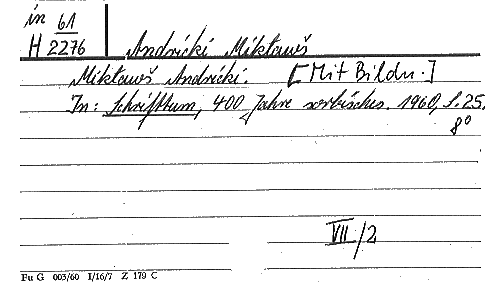 in 61
H 2276 Andricki Mikławš
Mikławš Andricki. [Mit Bildn.]
In: Schrifttum, 400 Jahre sorbisches. 1960, S. 25.
8°
VII/2
Fu G 003/60 I/16/7 Z 179 C